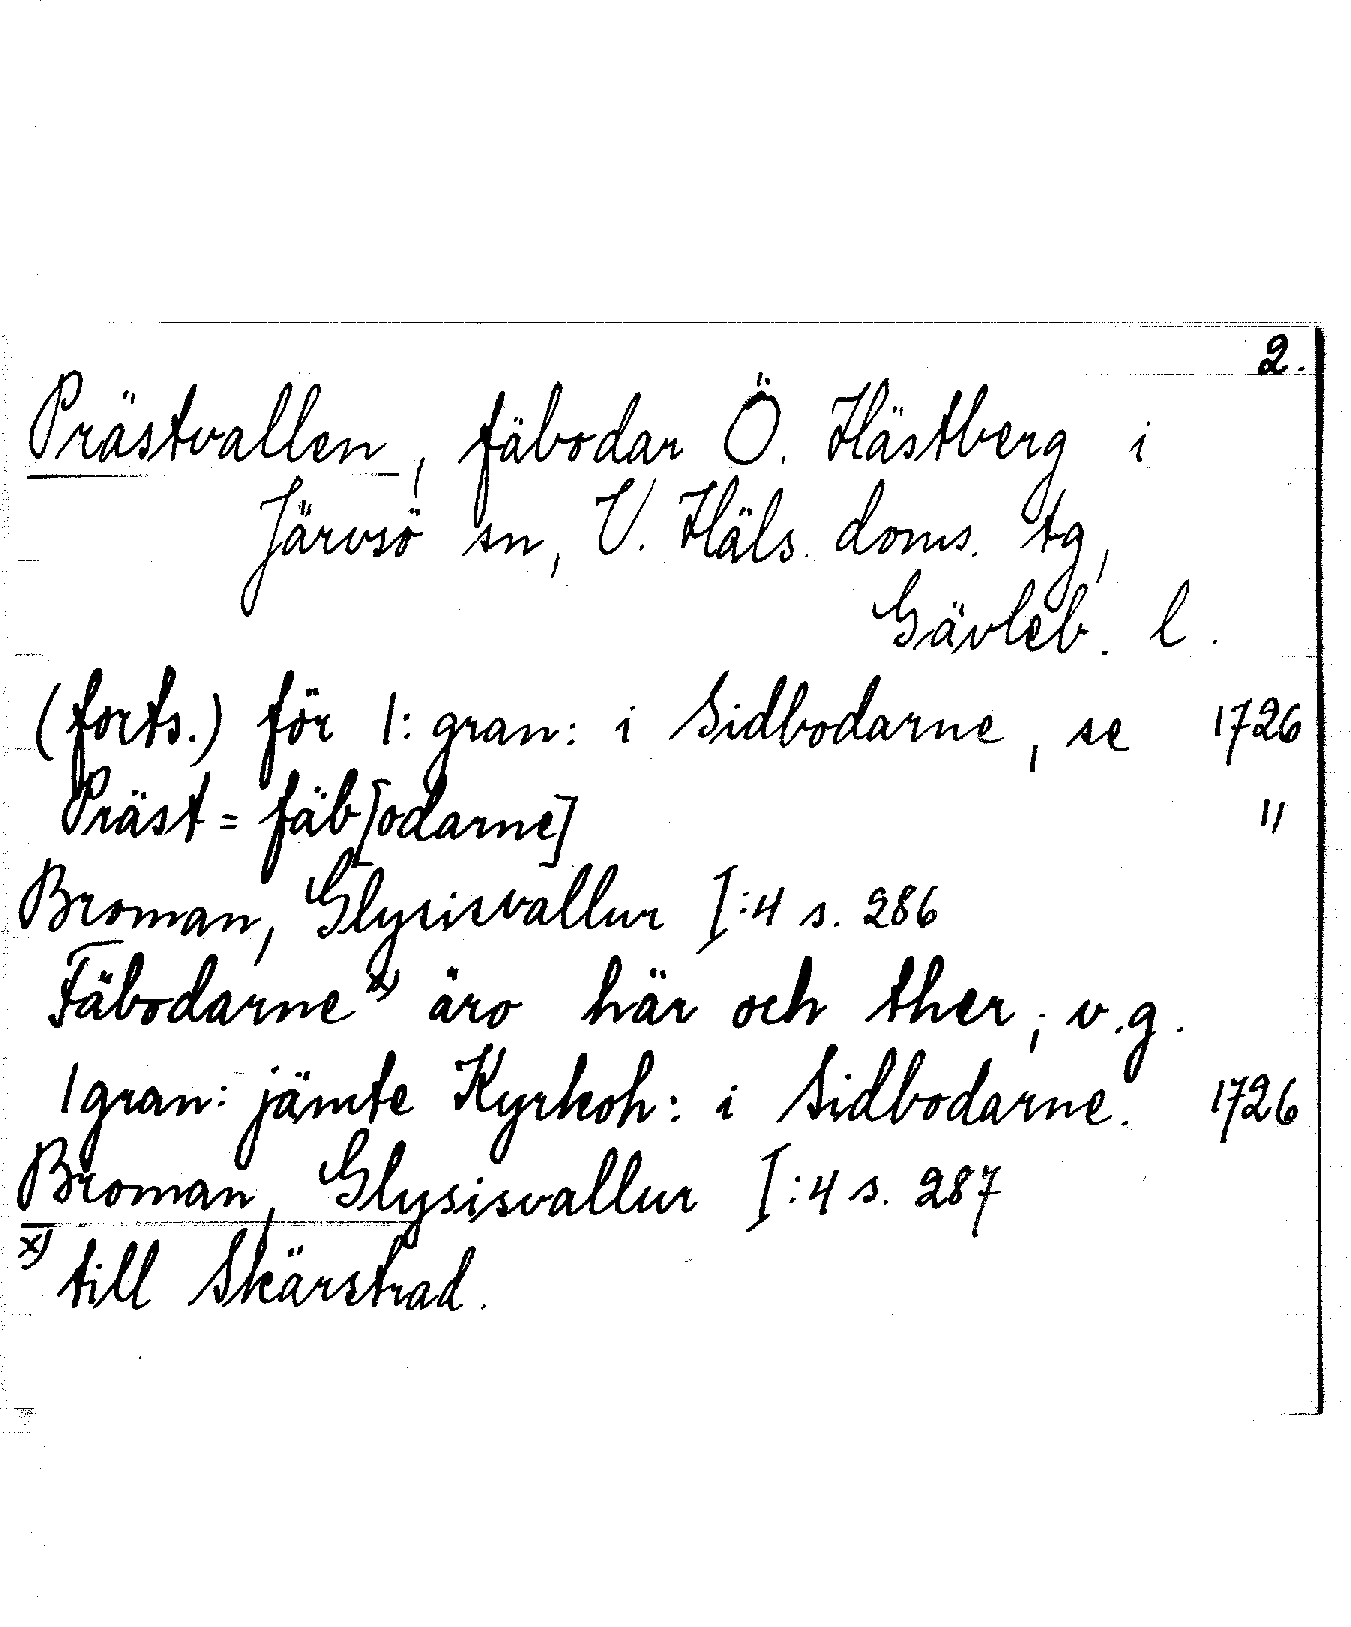 2.
Prästvallen, fäbodar Ö. Hästberg i
Järvsö sn, V. Häls. doms. tg,
Gävleb. l.
(forts.) för 1: gran: i Sidbodarne, se 1726
Präst=fäb[odarne] "
Broman, Glysisvallur I:4 s. 286
Fäbodarne x) äro här och ther, v.g.
1 gran: jämte Kyrkoh: i Sidbodarne. 1726
Broman, Glysisvallur I:4 s. 287
x) till Skärstrad.